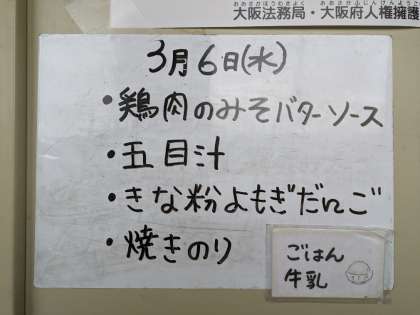 大阪法務局・大阪府人権擁護
3月6日(水)
・鶏肉のみそバターソース
・五目汁
・きな粉よもぎだんご
・焼きのり
ごはん
牛乳